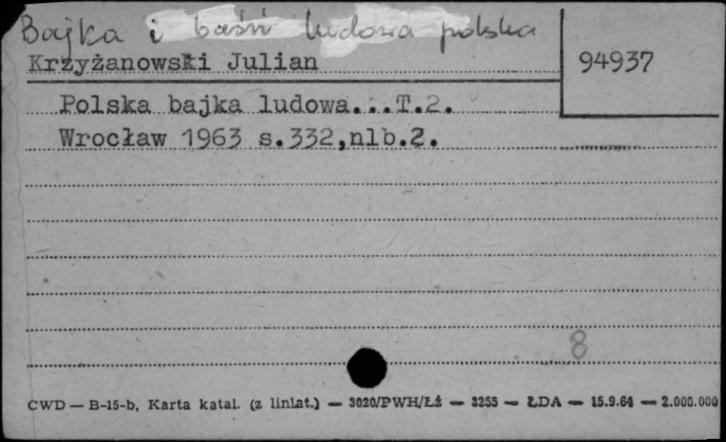 Bajka i baśń ludowa polska
Krzyżanowski Julian
94937
Polska bajka ludowa...T.2.
Wrocław 1963 s.332,nlb.2.
8
CWD — B-15-b, Karta katal. (z liniat.) — 3020/PWH/Łź — 3255 — ŁDA — 15.9.64 — 2.000.000